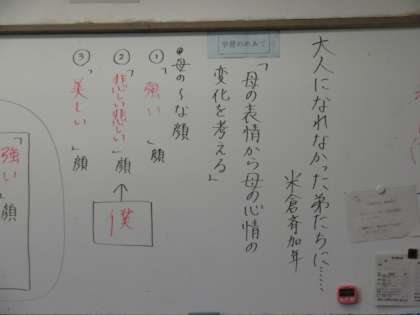 大人になれなかった弟たちに……
米倉斉加年
学習のめあて
「母の表情から母の心情の
変化を考える」
●母の〜な顔
①「強い」顔
②「悲しい悲しい」顔
僕
③「美しい」顔
「強い」顔